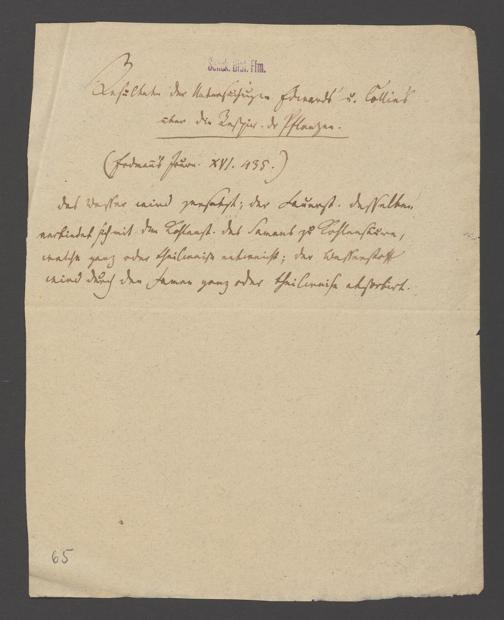 Senck. Bibl. Ffm.
Resultate der Untersuchungen Edwards' u. Collins
über die Respir. der Pflanzen.
(Erdmann's Journ. XVI. 435.)
das Wasser wird zersetzt; der Sauerst. desselben
verbindet sich mit dem Kohlenst. des Samens zu Kohlensäure,
welche ganz oder theilweise entweicht; der Wasserstoff
wird durch den Samen ganz oder theilweise absorbirt.
65